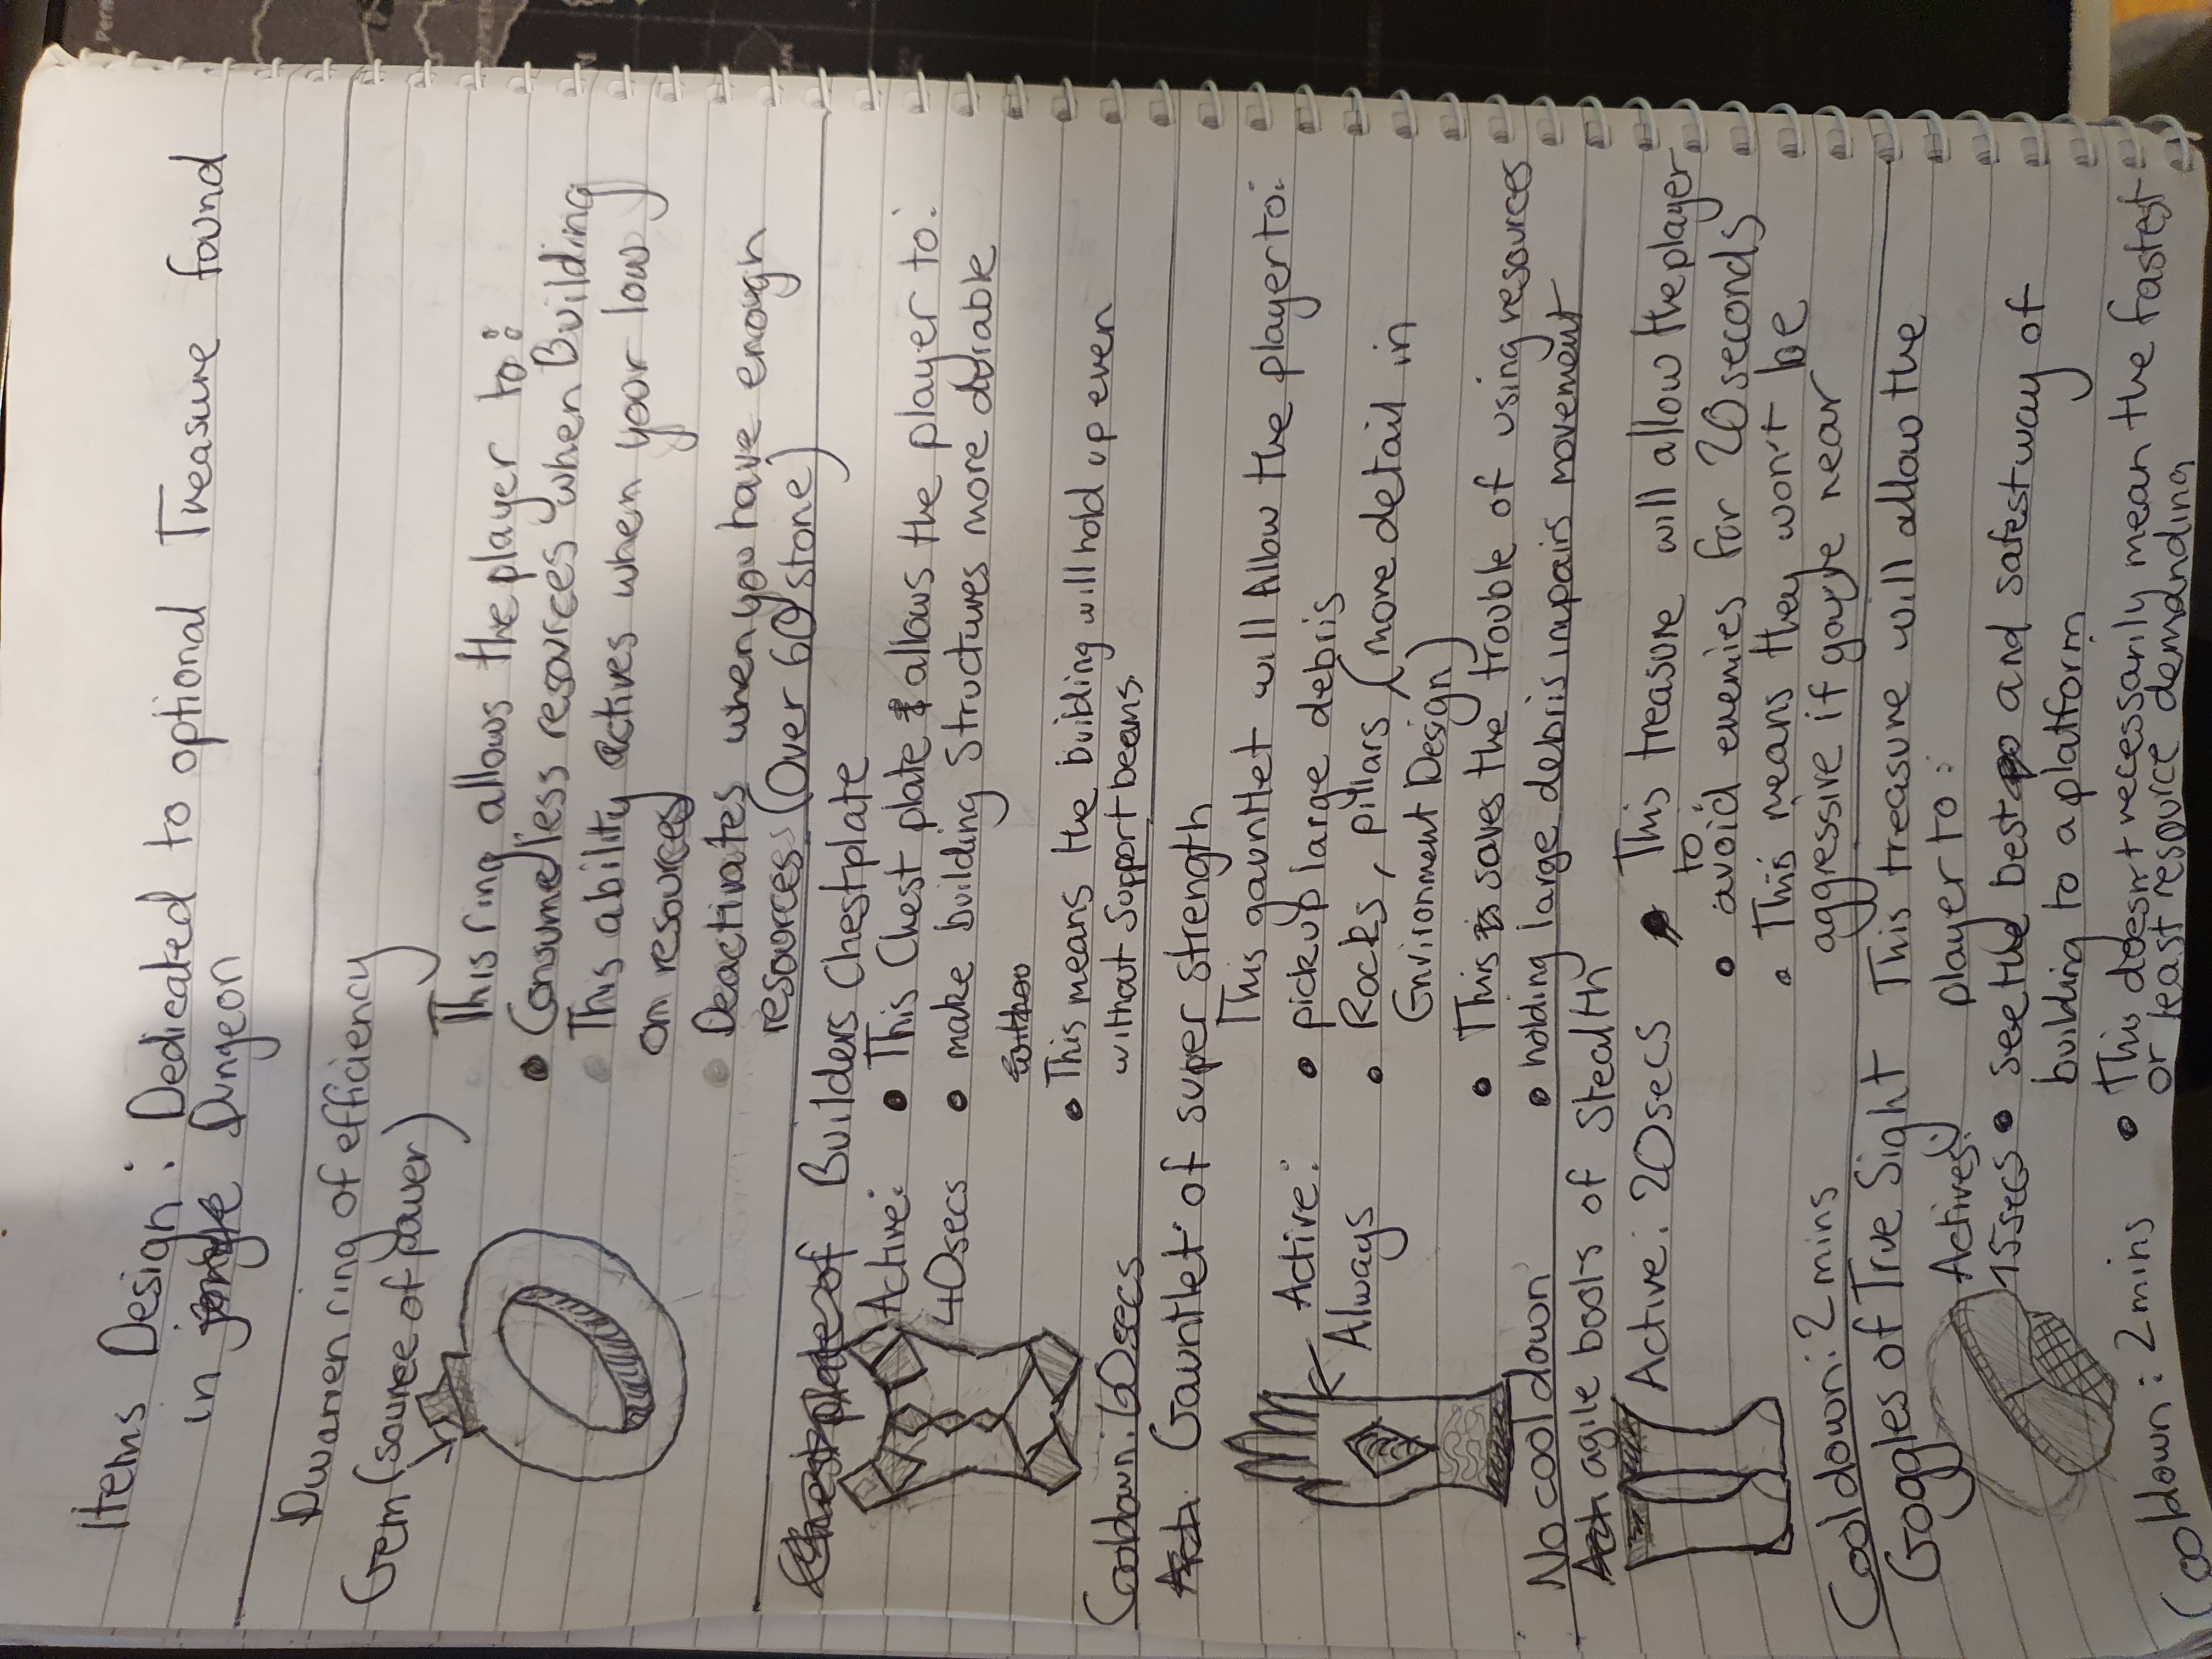 Items Design: Dedicated to optional Treasure found
in jongle Dungeon
Dwarven ring of efficiency
Gem (source of power)
This ring allows the player to:
• Consume less resources when Building
• This ability actives when your low
on resources
• Deactivates when you have enough
resources (Over 60 stone)
Chestplate of Builders Chestplate
Active:
40secs
• This Chest plate allows the player to:
• make building Structures more durable
withou
• This means the building will hold up even
without Support beems.
Cooldown: 60secs
Act Gauntlet of super strength
This gauntlet will Allow the player to:
Active:
Always
• pickup large debris
• Rocks, pillars (more detail in
Environment Design)
• This is saves the trouble of using resources
• holding large debris impairs movement
No cooldown
Act agile boots of Stealth
Active: 20secs
• This treasure will allow the player
to:
• avoid enemies for 20seconds
• This means they won't be
aggressive if you're near
Cooldown: 2mins
Goggles of True Sight
This treasure will allow the
player to:
Actives:
15secs
• see the best and safest way of
building to a platform
• This doesn't necessarily mean the fastest
or least resource demanding
Cooldown: 2mins
Perm